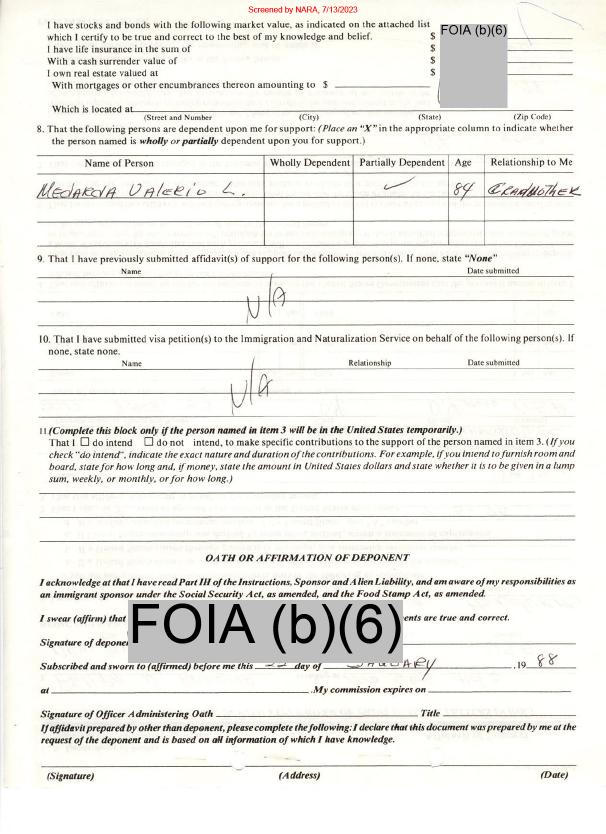 Screened by NARA, 7/13/2023
I have stocks and bonds with the following market value, as indicated on the attached list
which I certify to be true and correct to the best of my knowledge and belief. $
FOIA (b)(6)
I have life insurance in the sum of $
With a cash surrender value of $
I own real estate valued at $
With mortgages or other encumbrances thereon amounting to $
Which is located at
(Street and Number) (City) (State) (Zip Code)
8. That the following persons are dependent upon me for support: (Place an "X" in the appropriate column to indicate whether
the person named is wholly or partially dependent upon you for support.)
Name of Person Wholly Dependent Partially Dependent Age Relationship to Me
MEDARDA VALERIO L. ✓ 84 GRANDMOTHER
9. That I have previously submitted affidavit(s) of support for the following person(s). If none, state "None"
Name Date submitted
N/A
10. That I have submitted visa petition(s) to the Immigration and Naturalization Service on behalf of the following person(s). If
none, state none.
Name Relationship Date submitted
N/A
11.(Complete this block only if the person named in item 3 will be in the United States temporarily.)
That I ☐ do intend ☐ do not intend, to make specific contributions to the support of the person named in item 3. (If you
check "do intend", indicate the exact nature and duration of the contributions. For example, if you intend to furnish room and
board, state for how long and, if money, state the amount in United States dollars and state whether it is to be given in a lump
sum, weekly, or monthly, or for how long.)
OATH OR AFFIRMATION OF DEPONENT
I acknowledge at that I have read Part III of the Instructions, Sponsor and Alien Liability, and am aware of my responsibilities as
an immigrant sponsor under the Social Security Act, as amended, and the Food Stamp Act, as amended.
I swear (affirm) that ents are true and correct.
FOIA (b)(6)
Signature of depone
Subscribed and sworn to (affirmed) before me this day of JANUARY , 19 88
at .My commission expires on
Signature of Officer Administering Oath Title
If affidavit prepared by other than deponent, please complete the following: I declare that this document was prepared by me at the
request of the deponent and is based on all information of which I have knowledge.
(Signature) (Address) (Date)